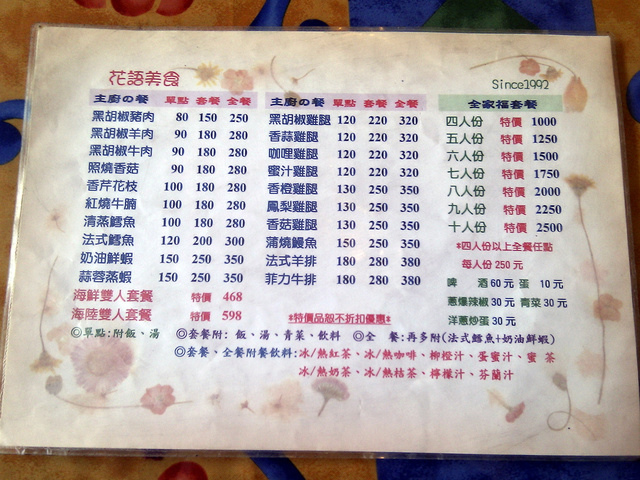 花語美食
Since1992
主廚の餐 單點 套餐 全餐
黑胡椒豬肉 80 150 250
黑胡椒羊肉 90 180 280
黑胡椒牛肉 90 180 280
照燒香菇 90 180 280
香芹花枝 100 180 280
紅燒牛腩 100 180 280
清蒸鱈魚 100 180 280
法式鱈魚 120 200 300
奶油鮮蝦 150 250 350
蒜蓉蒸蝦 150 250 350
海鮮雙人套餐 特價 468
海陸雙人套餐 特價 598
主廚の餐 單點 套餐 全餐
黑胡椒雞腿 120 220 320
香蒜雞腿 120 220 320
咖哩雞腿 120 220 320
蜜汁雞腿 120 220 320
香橙雞腿 130 250 350
鳳梨雞腿 130 250 350
香菇雞腿 130 250 350
蒲燒鰻魚 150 250 350
法式羊排 180 280 380
菲力牛排 180 280 380
*特價品恕不折扣優惠*
全家福套餐
四人份 特價 1000
五人份 特價 1250
六人份 特價 1500
七人份 特價 1750
八人份 特價 2000
九人份 特價 2250
十人份 特價 2500
*四人份以上全餐任點
每人份 250 元
啤 酒 60 元 蛋 10 元
蔥爆辣椒 30 元 青菜 30 元
洋蔥炒蛋 30 元
◎單點:附飯、湯 ◎套餐附: 飯、湯、青菜、飲料 ◎全 餐:再多附(法式鱈魚+奶油鮮蝦)
◎套餐、全餐附餐飲料:冰/熱紅茶、冰/熱咖啡、柳橙汁、蛋蜜汁、蜜 茶
冰/熱奶茶、冰/熱桔茶、檸檬汁、芬蘭汁